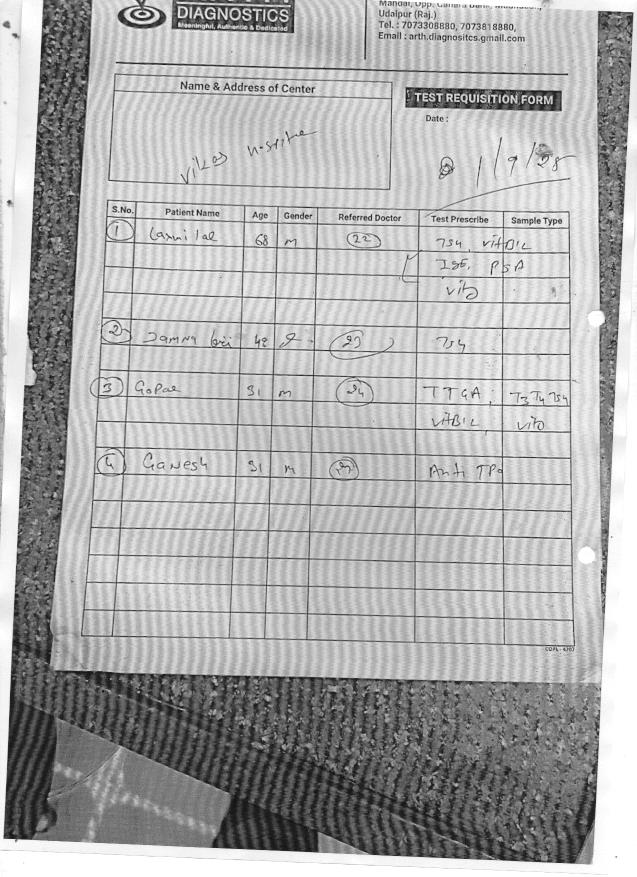 DIAGNOSTICS
Meaningful, Authentic & Dedicated
Udaipur (Raj.)
Tel. : 7073308880, 7073818880,
Email : arth.diagnositcs.gmail.com
Name & Address of Center
TEST REQUISITION FORM
Date :
1/9/25
Vikas Hospital
S.No. Patient Name Age Gender Referred Doctor Test Prescribe Sample Type
1 Laxmi lal 68 M 22 TSH, VitB12
IgE, PSA
VitD
2 Jamna bai 48 F 23 TSH
3 Gopal 31 M 24 TTGA, T3 T4 TSH
VitB12, VitD
4 Ganesh 31 M Anti TPO